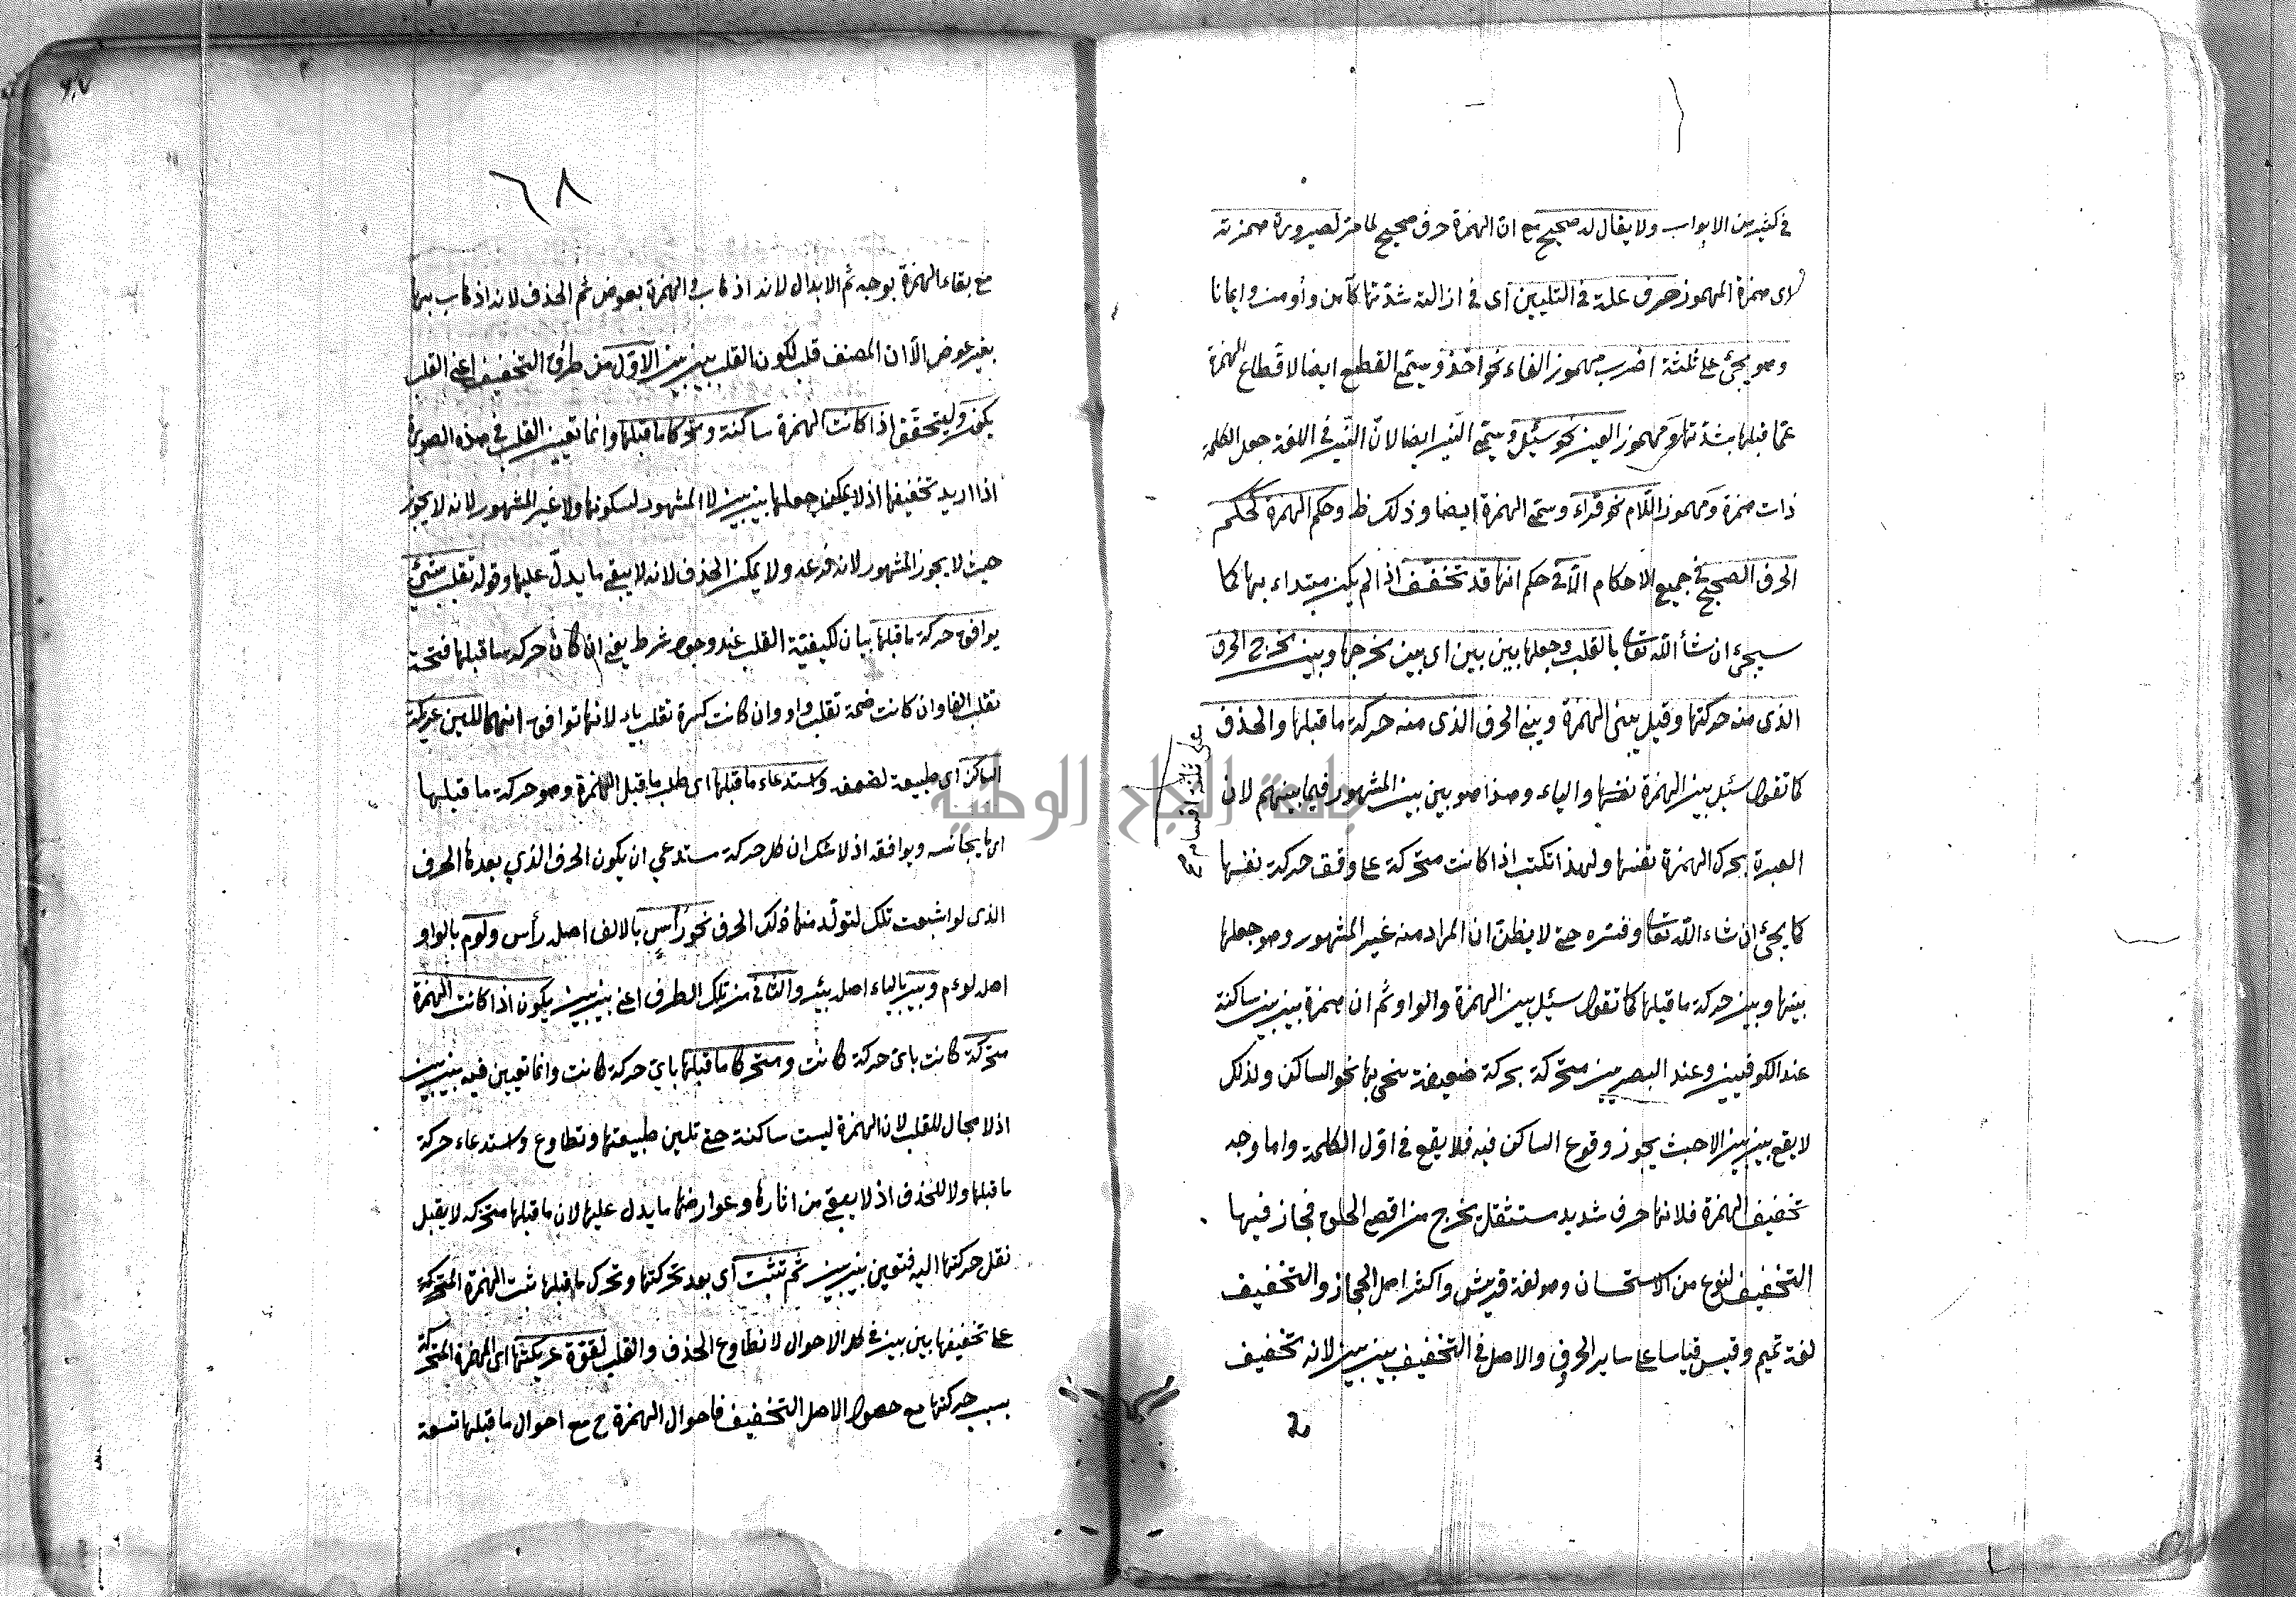 في كثير من الابواب ولا يقال له صحيح مع ان الهمزة حرف صحيح لما مر لصيرورة همزته
اى همزة المهموز حرف علة في التليين اى في ازالة شدتها كآمن وأومن وايمانا
وهو يجئ على ثلثة اضرب مهموز الفاء نحو اخذ ويسمى القطع ايضا لاقطاع الهمزة
عما قبلها بشدتها ومهموز العين نحو سئل ويسمى النبر ايضا لان النبر في اللغة جعل الكلمة
ذات همزة ومهموز اللام نحو قراء ويسمى الهمزة ايضا وذلك ظ وحكم الهمزة كحكم
الحرف الصحيح في جميع الاحكام الا في حكم انها قد تخفف اذا لم يكن مبتداء بها كما
سيجئ ان شأ الله تعالى بالقلب وجعلها بين بين اى بين مخرجها وبين مخرج الحرف
الذى منه حركتها وقيل بين الهمزة وبين الحرف الذى منه حركة ما قبلها والحذف
على ثلثة اقسام
كما تقول سئل بين الهمزة نفسها والياء وهذا هو بين بين المشهور فيما بينهم لان
العبرة بحركة الهمزة نفسها ولهذا تكتب اذا كانت متحركة على وفق حركة نفسها
كما يجئ ان شاء الله تعالى وفسره حتى لا يظن ان المراد منه غير المشهور وهو جعلها
بينها وبين حركة ما قبلها كما تقول سئل بين الهمزة والواو ثم ان همزة بين بين ساكنة
عند الكوفيين وعند البصريين متحركة بحركة ضعيفة ينحى بها نحو الساكن ولذلك
لا يقع بين بين الا حيث يجوز وقوع الساكن فيه فلا يقع في اول الكلمة واما وجه
تخفيف الهمزة فلانها حرف شديد مستثقل يخرج من اقصى الحلق فجاز فيها
التخفيف لنوع من الاستحسان وهو لغة قريش واكثر اهل الحجاز والتخفيف
لغة تميم وقيس قياسا على ساير الحرف والاصل في التخفيف بين بين لانه تخفيف
٦٨
مع بقاء الهمزة بوجه ثم الابدال لانه اذهاب الهمزة بعوض ثم الحذف لانه اذهاب بها
بغير عوض الا ان المصنف قلب لكون القلب بين بين الاول من طرق التخفيف اعنى القلب
يكون ويتحقق اذا كانت الهمزة ساكنة ومتحركا ما قبلها وانما تعين القلب في هذه الصورة
اذا اريد تخفيفها اذ لا يمكن جعلها بين بين لا المشهود لسكونها ولا غير المشهور لانه لا يجوز
حيث لا يجوز المشهور لانه فرعه ولا يمكن الحذف لانه لا يبقى ما يدل عليها وقوله تقلب بشئ
يوافق حركة ما قبلها بيان لكيفية القلب عند وجود شرط يعنى ان كان حركة ما قبلها فتحة
تقلب الفا وان كانت ضمة تقلب واو وان كانت كسرة تقلب ياء لانها توافق انتهى للين عريكة
الساكن اى طبيعة لضعفه واستدعاء ما قبلها اى طلب ما قبل الهمزة وهو حركة ما قبلها
اى ما يجانسه ويوافقه اذ لا شك ان كل حركة ستدعي ان يكون الحرف الذي بعدها الحرف
الذى لو اشبعت تلك لتولد منها ذلك الحرف نحو راس بالالف اصله رأس ولوم بالواو
اصله لوءم وبير بالياء اصله بئر والثانى من تلك الطرف اعنى بين بين يكون اذا كانت الهمزة
متحركة كانت باى حركة كانت ومتحركا ما قبلها باي حركة كانت وانما تعين فيه بين بين
اذ لا مجال للقلب لان الهمزة ليست ساكنة حتى تلين طبيعتها وتطاوع واستدعاء حركة
ما قبلها ولا للحذف اذ لا يبقى من اثارها وعوارضها ما يدل عليها لان ما قبلها متحركة لا يقبل
نقل حركتها اليه فتعين بين بين ثم تثبت اى بعد تحركتها وتحرك ما قبلها ثبت الهمزة المتحركة
على تخفيفها بين بين في كل الاحوال لا تطاوع الحذف والقلب لقوة عريكتها اى الهمزة المتحركة
بسبب حركتها مع حصول الاصل التخفيف فاحوال الهمزة ح مع احوال ما قبلها تسعة
جامعة النجاح الوطنية